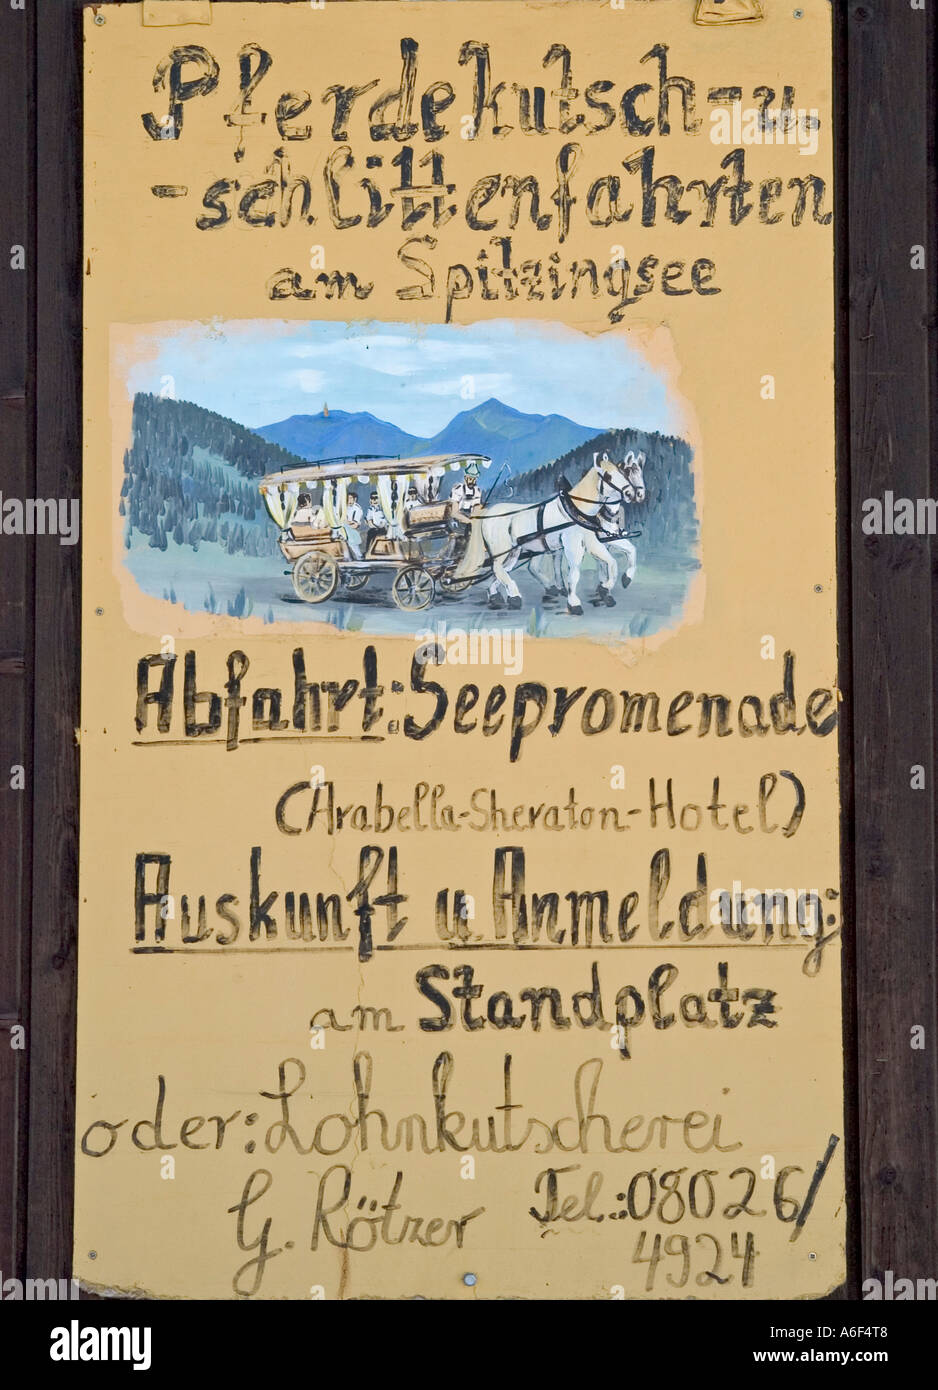 Pferdekutsch-u.
-schlittenfahrten
am Spitzingsee
Abfahrt: Seepromenade
(Arabella-Sheraton-Hotel)
Auskunft u. Anmeldung:
am Standplatz
oder: Lohnkutscherei
G. Rötzer Tel.: 08026/
4924
alamy
Image ID: A6F4T8
www.alamy.com